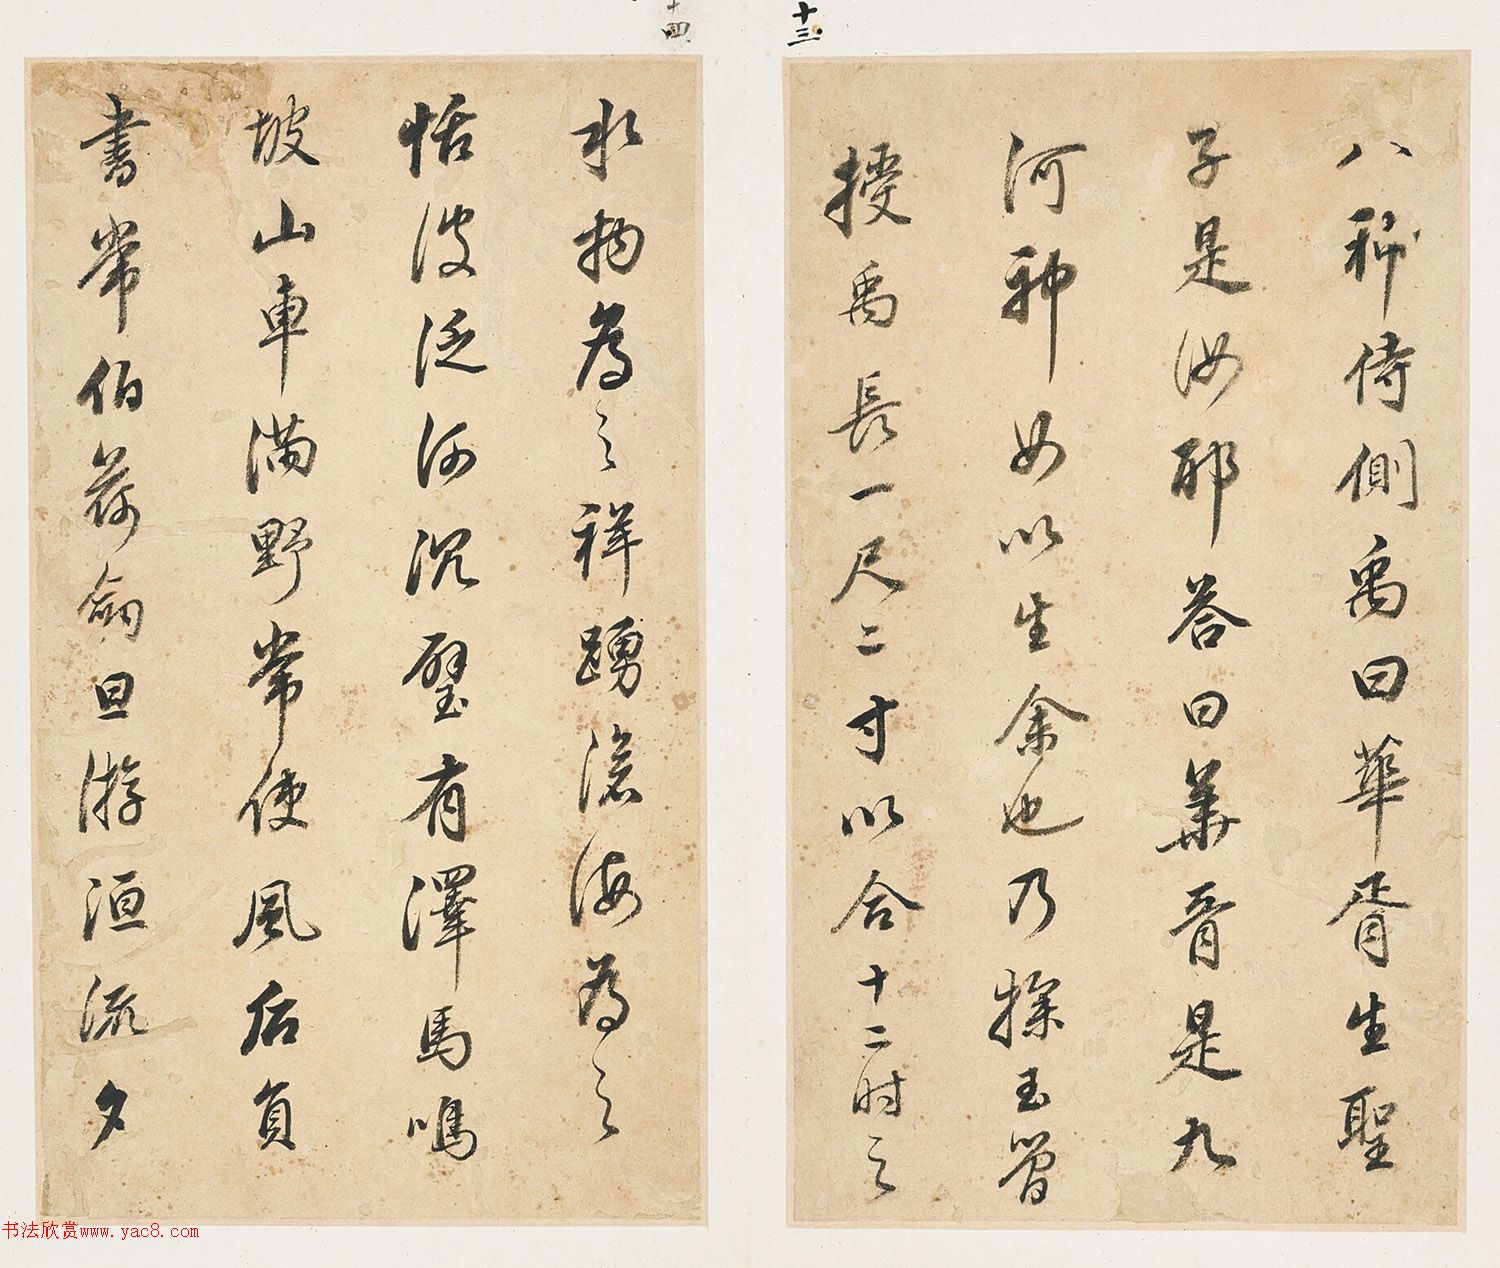 十三
八神侍側禹曰華胥生聖
子是汝耶答曰華胥是九
河神女以生余也乃探玉簡
授禹長一尺二寸以合十二时之
十四
水物為之祥踴滄海為之
恬波泛河沉璧有澤馬鳴
坡山車滿野常使風后負
書常伯荷劒旦游洹流夕
书法欣赏www.yac8.com